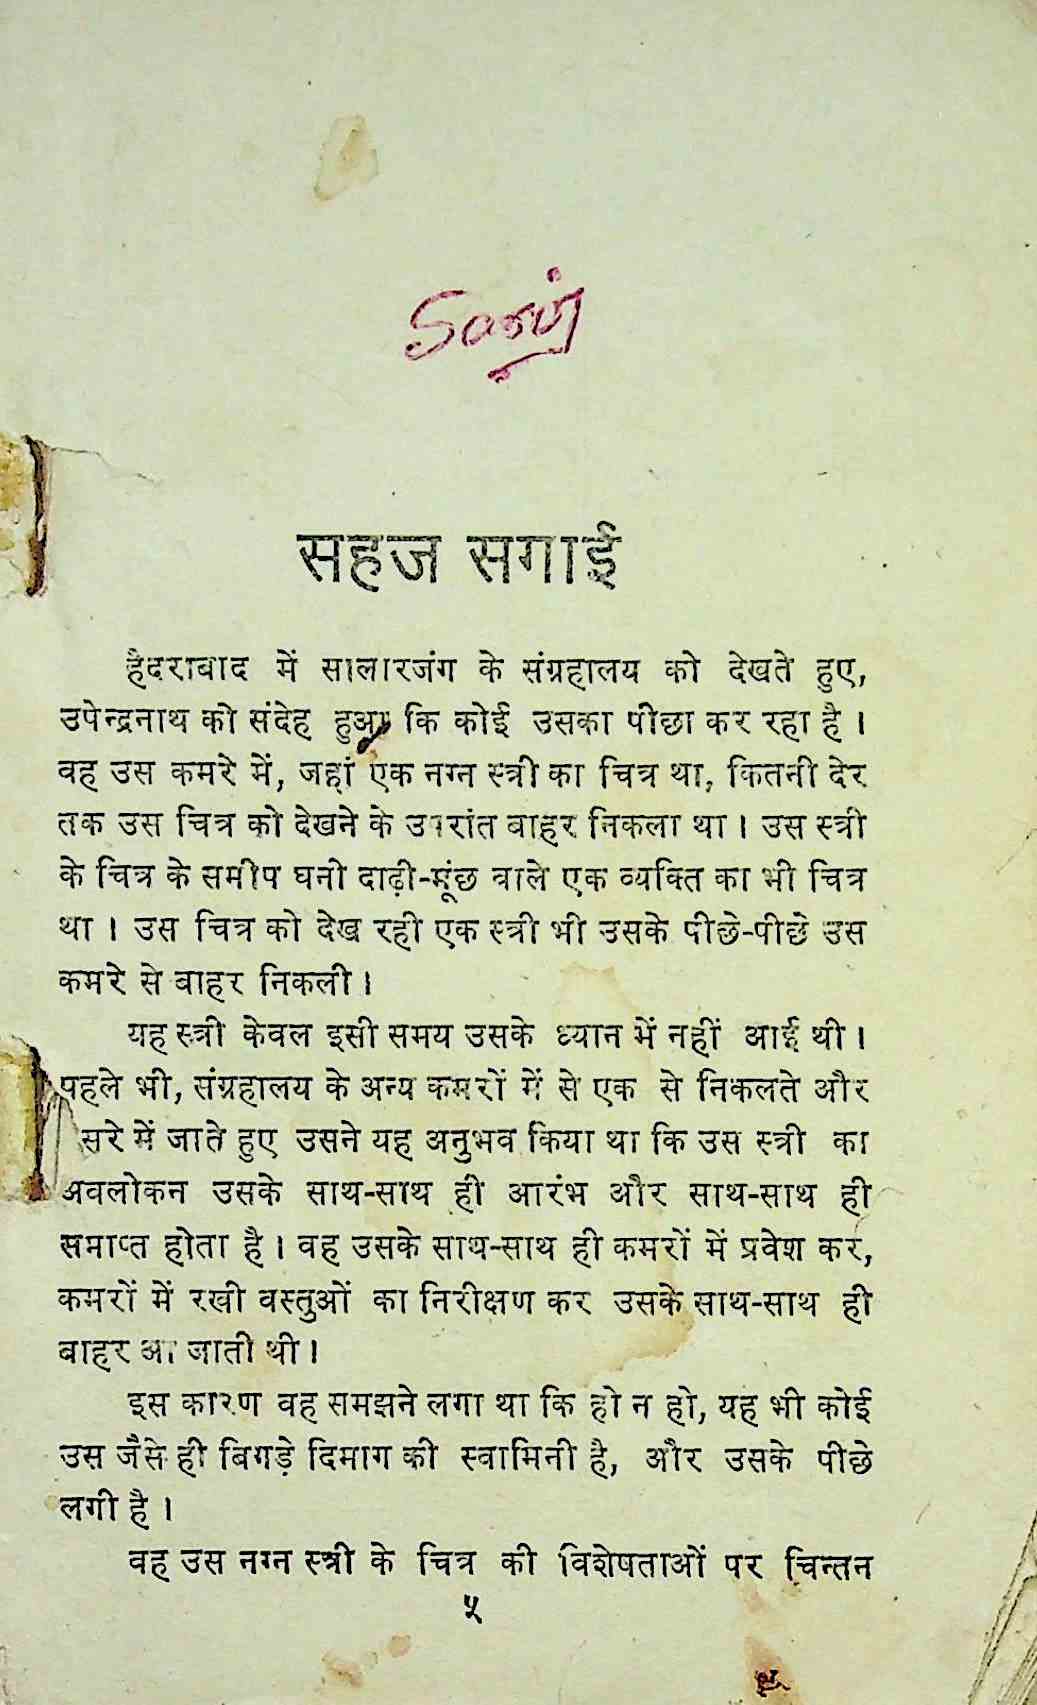 सहज सगाई
हैदराबाद में सालारजंग के संग्रहालय को देखते हुए,
उपेन्द्रनाथ को संदेह हुआ कि कोई उसका पीछा कर रहा है ।
वह उस कमरे में, जहां एक नग्न स्त्री का चित्र था, कितनी देर
तक उस चित्र को देखने के उपरांत बाहर निकला था । उस स्त्री
के चित्र के समीप घनी दाढ़ी-मूंछ वाले एक व्यक्ति का भी चित्र
था । उस चित्र को देख रही एक स्त्री भी उसके पीछे-पीछे उस
कमरे से बाहर निकली ।
यह स्त्री केवल इसी समय उसके ध्यान में नहीं आई थी ।
पहले भी, संग्रहालय के अन्य कमरों में से एक से निकलते और
सरे में जाते हुए उसने यह अनुभव किया था कि उस स्त्री का
अवलोकन उसके साथ-साथ ही आरंभ और साथ-साथ ही
समाप्त होता है । वह उसके साथ-साथ ही कमरों में प्रवेश कर,
कमरों में रखी वस्तुओं का निरीक्षण कर उसके साथ-साथ ही
बाहर आ जाती थी ।
इस कारण वह समझने लगा था कि हो न हो, यह भी कोई
उस जैसे ही बिगड़े दिमाग की स्वामिनी है, और उसके पीछे
लगी है ।
वह उस नग्न स्त्री के चित्र की विशेषताओं पर चिन्तन
५